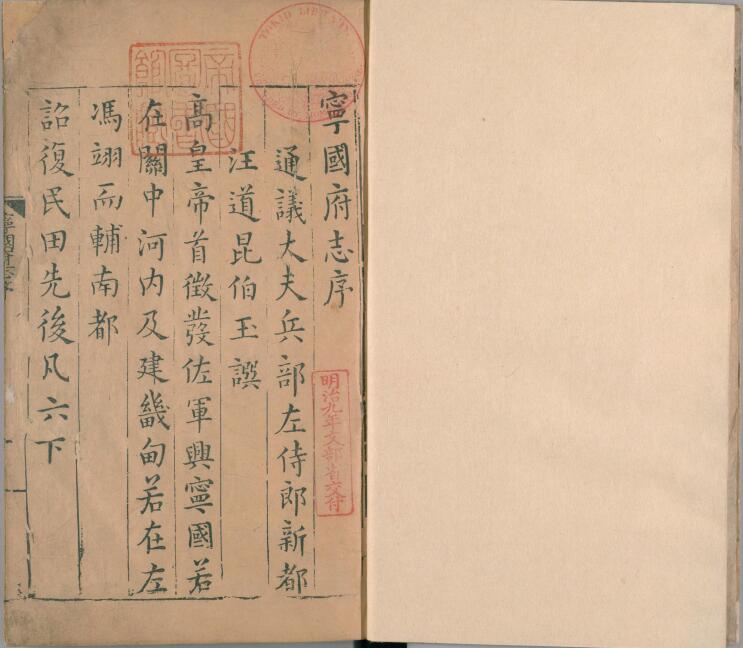 寧國府志序
通議大夫兵部左侍郎新都
汪道昆伯玉譔
高皇帝首徵發佐軍興寧國若
在關中河内及建畿甸若在左
馮翊而輔南都
詔復民田先後凡六下
明治九年文部省交付
TOKIO LIBRARY